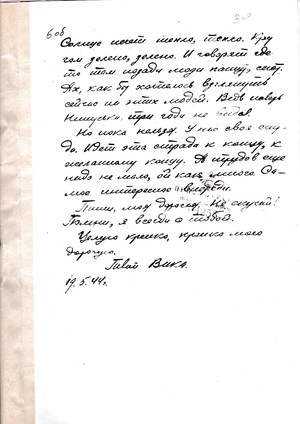 6 об
Солнце печет тепло, тепло. Кру
гом зелено, зелено. И говорят где
то там позади люди пашут, сеют.
Ах, как бы хотелось взглянуть
сейчас на этих людей. Ведь
три года не видал.
Но пока нельзя. У нас своя
Идет эта страда к концу, к
желанному концу. А трудов еще
надо не мало, ой как много. Са-
мое интересное впереди.
Пиши, моя дорогая. Не скучай!
Помни, я всегда с тобой.
Целую крепко, крепко мою
дорогую.
Твой Вика.
19.5.44г.